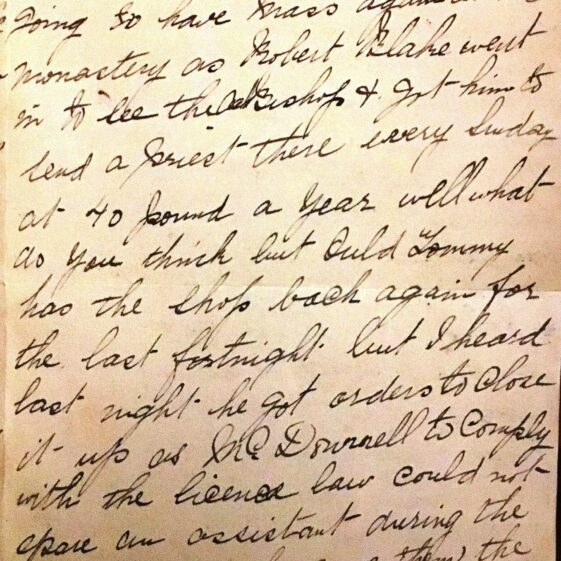 going to have Mass again
monastery as Robert Blake went
in to see the Bishop & got him to
send a Priest there every Sunday
at 40 pound a Year well what
do You think but Ould Tommy
has the shop back again for
the last fortnight but I heard
last night he got orders to Close
it up as Mc Donnell to Comply
with the licence law could not
spare an assistant during the
them the